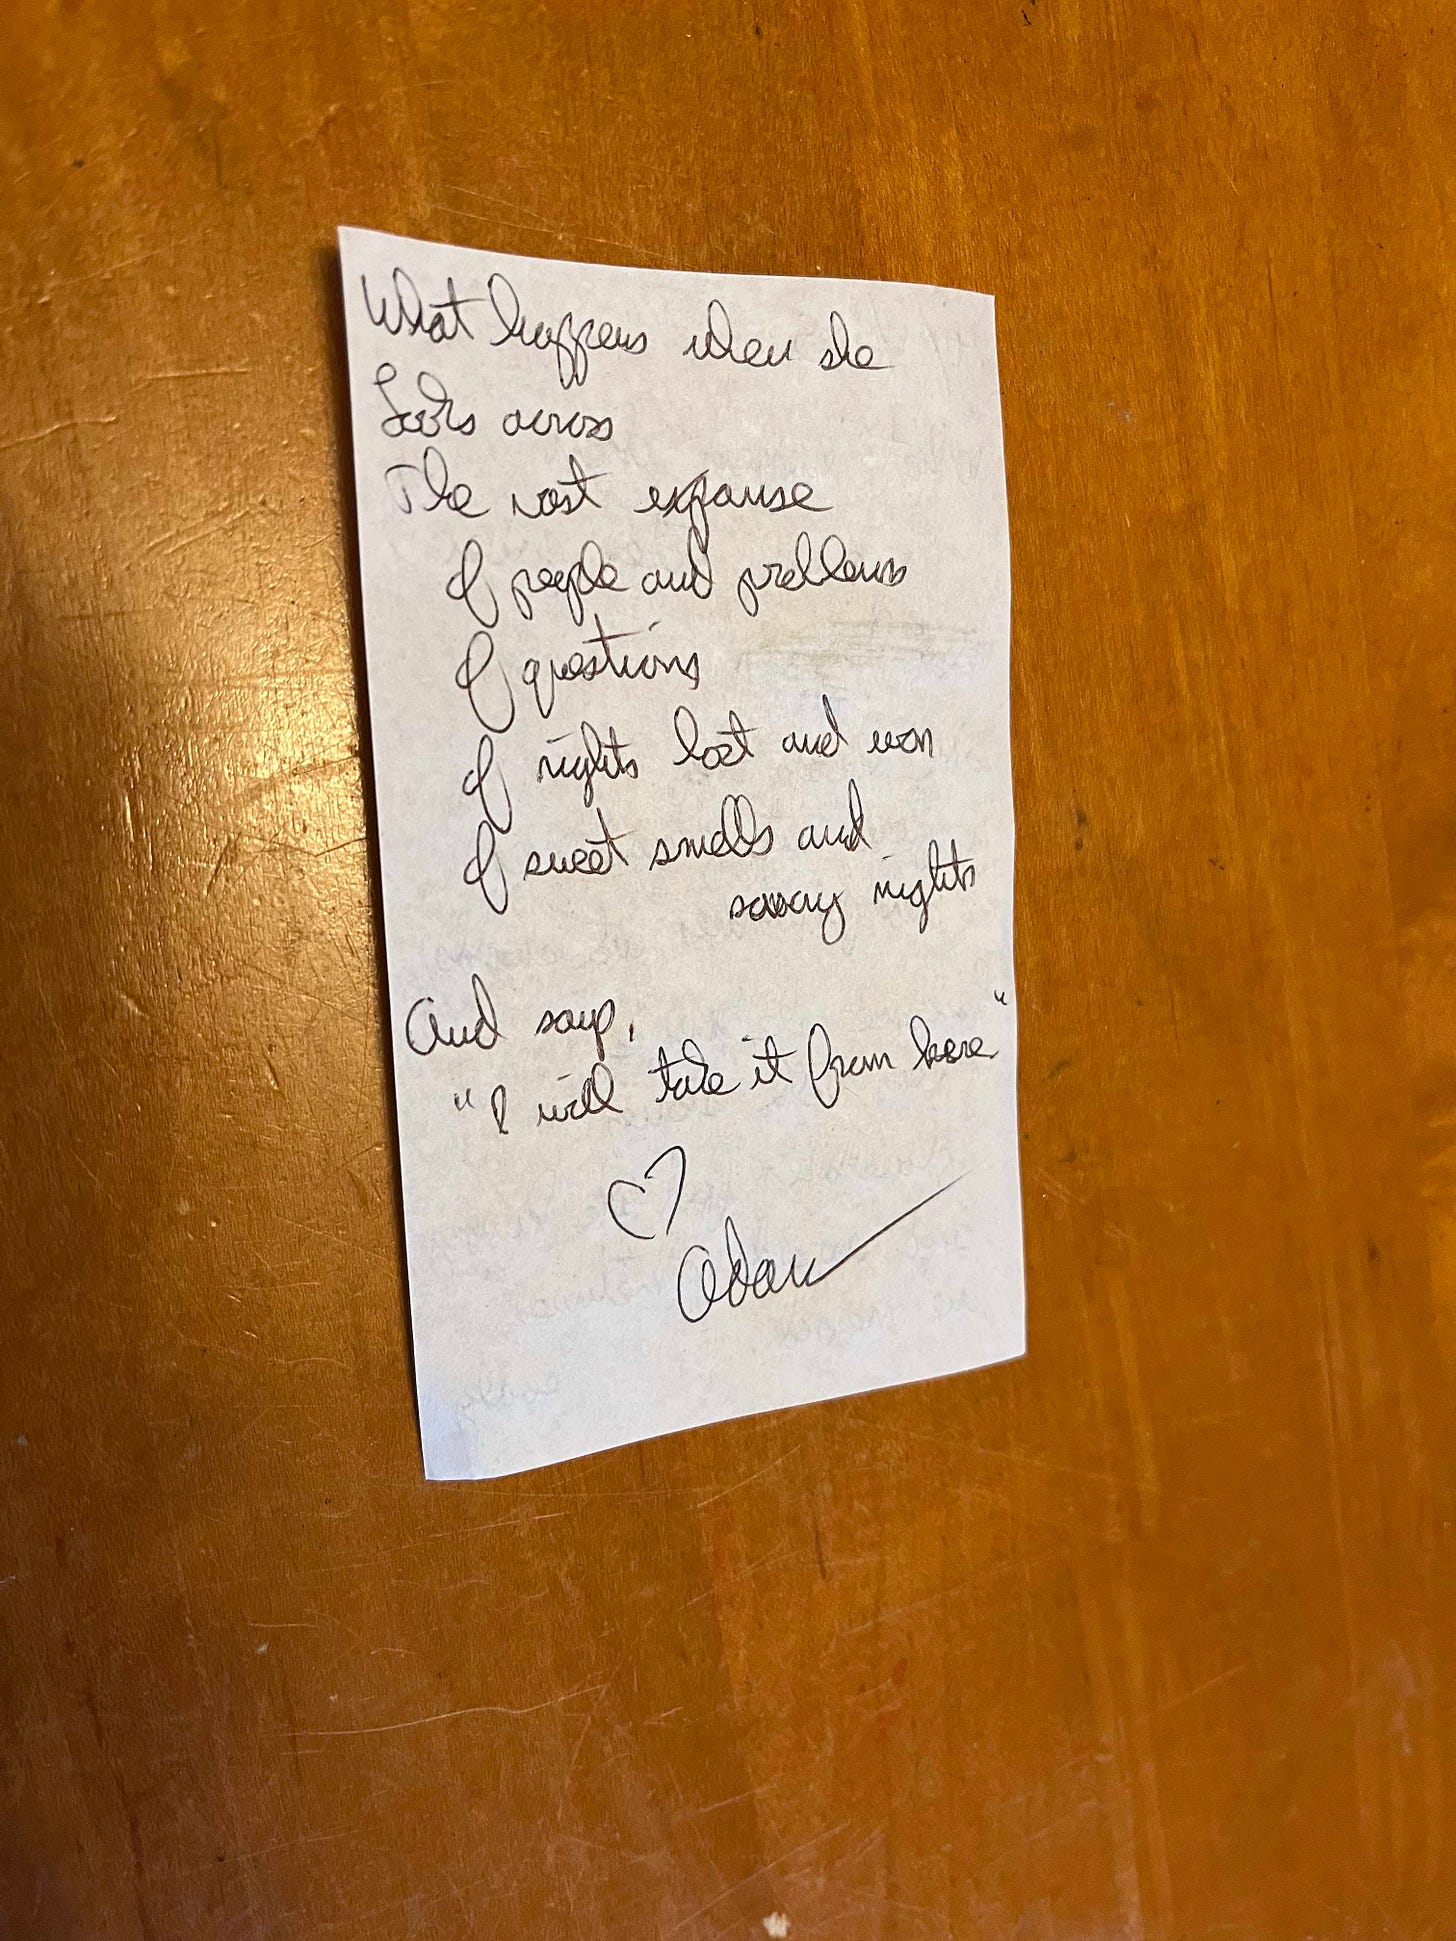 What happens when she
Looks across
The vast expanse
Of people and problems
Of questions
Of rights lost and won
Of sweet smells and
sassy nights
And says,
"I will take it from here"
♡
Adam